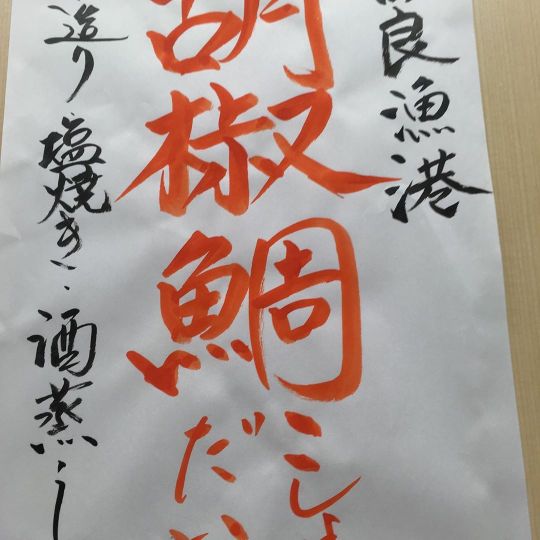 良漁港
胡椒鯛
こしょ
だい
造り 塩焼き・酒蒸し